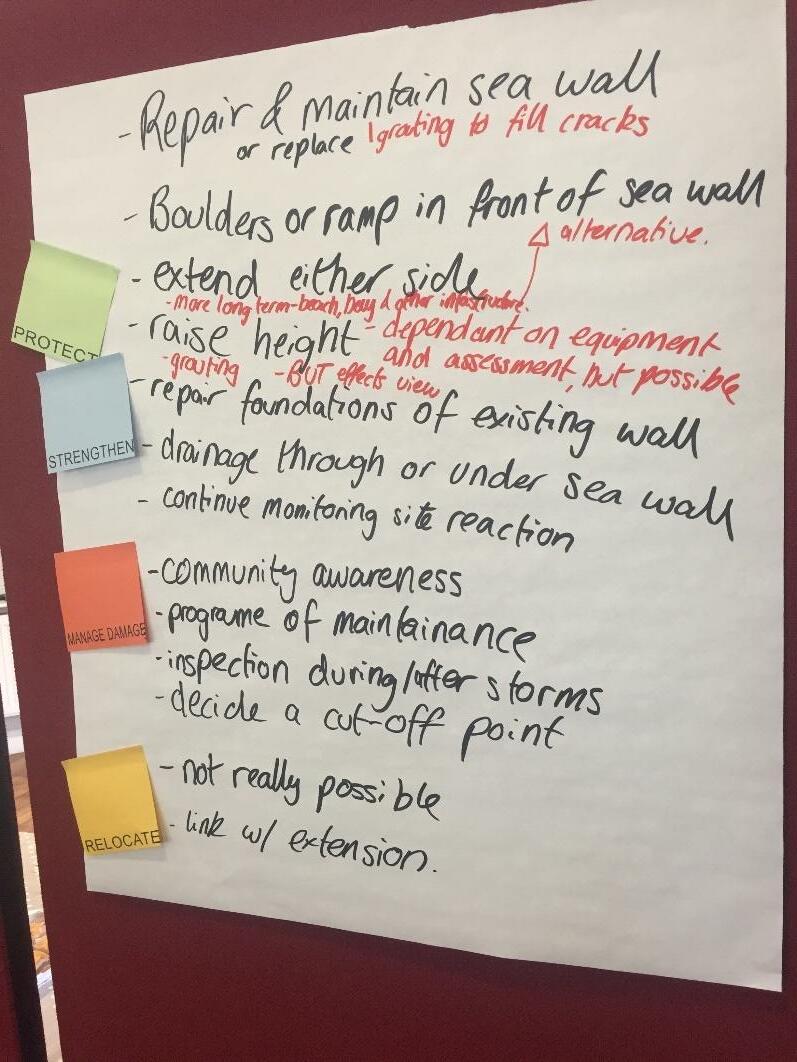 - Repair & maintain sea wall
or replace /grouting to fill cracks
- Boulders or ramp in front of sea wall
△ alternative.
- extend either side
- more long term - beach, bay & other
- raise height - dependant on equipment
and assessment, but possible
- grouting - BUT effects view
- repair foundations of existing wall
- drainage through or under sea wall
- continue monitoring site reaction
- community awareness
- programe of maintainance
- inspection during/after storms
- decide a cut-off point
- not really possible
- link w/ extension.
PROTECT
STRENGTHEN
MANAGE DAMAGE
RELOCATE